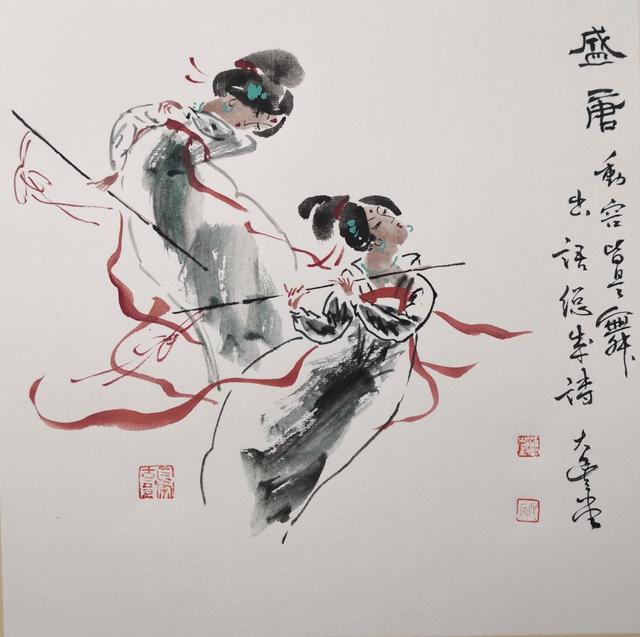 盛唐
動容皆是舞
出語總成詩